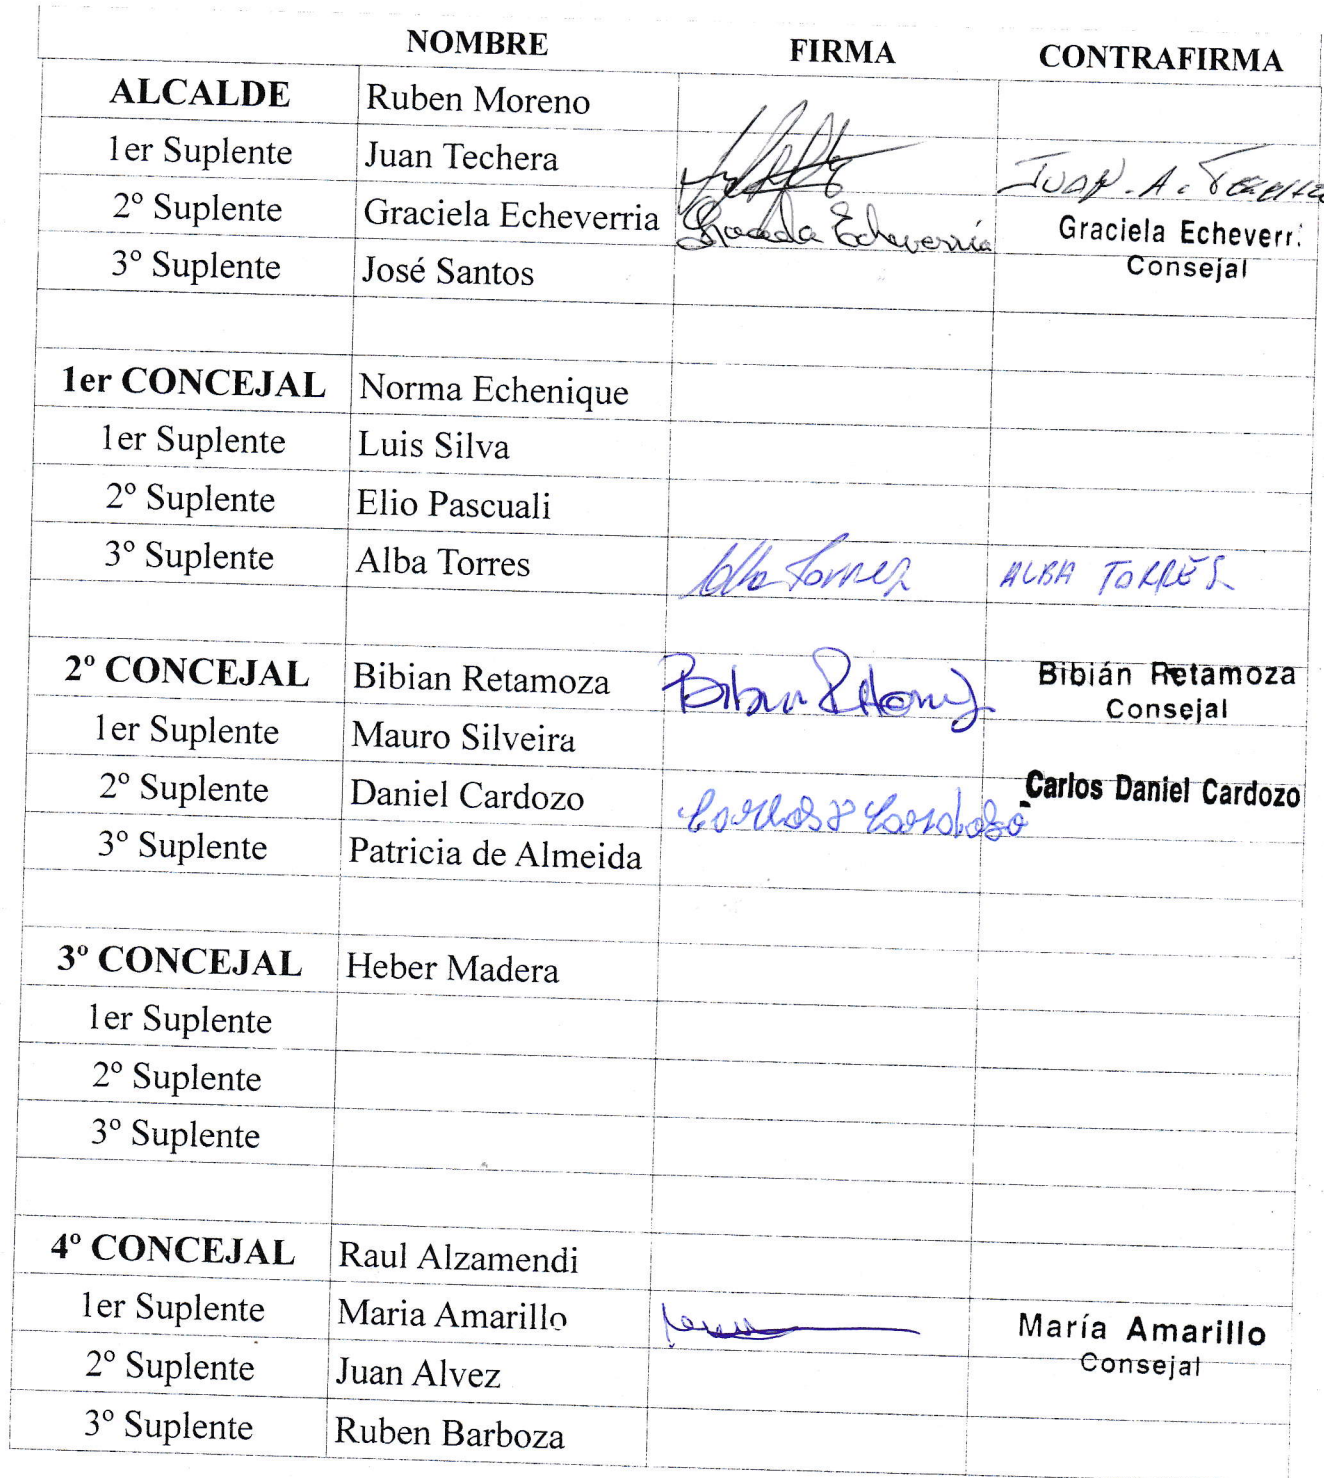 NOMBRE FIRMA CONTRAFIRMA
ALCALDE Ruben Moreno
1er Suplente Juan Techera JUAN . A .
2º Suplente Graciela Echeverria Graciela Echeverría Graciela Echeverr
3º Suplente José Santos Consejal
1er CONCEJAL Norma Echenique
1er Suplente Luis Silva
2º Suplente Elio Pascuali
3º Suplente Alba Torres Alba Torres ALBA TORRES
2º CONCEJAL Bibian Retamoza Bibián Retamoza
Consejal
1er Suplente Mauro Silveira
2º Suplente Daniel Cardozo Carlos Daniel Cardozo
3º Suplente Patricia de Almeida
3º CONCEJAL Heber Madera
1er Suplente
2º Suplente
3º Suplente
4º CONCEJAL Raul Alzamendi
1er Suplente Maria Amarillo María Amarillo
Consejal
2º Suplente Juan Alvez
3º Suplente Ruben Barboza